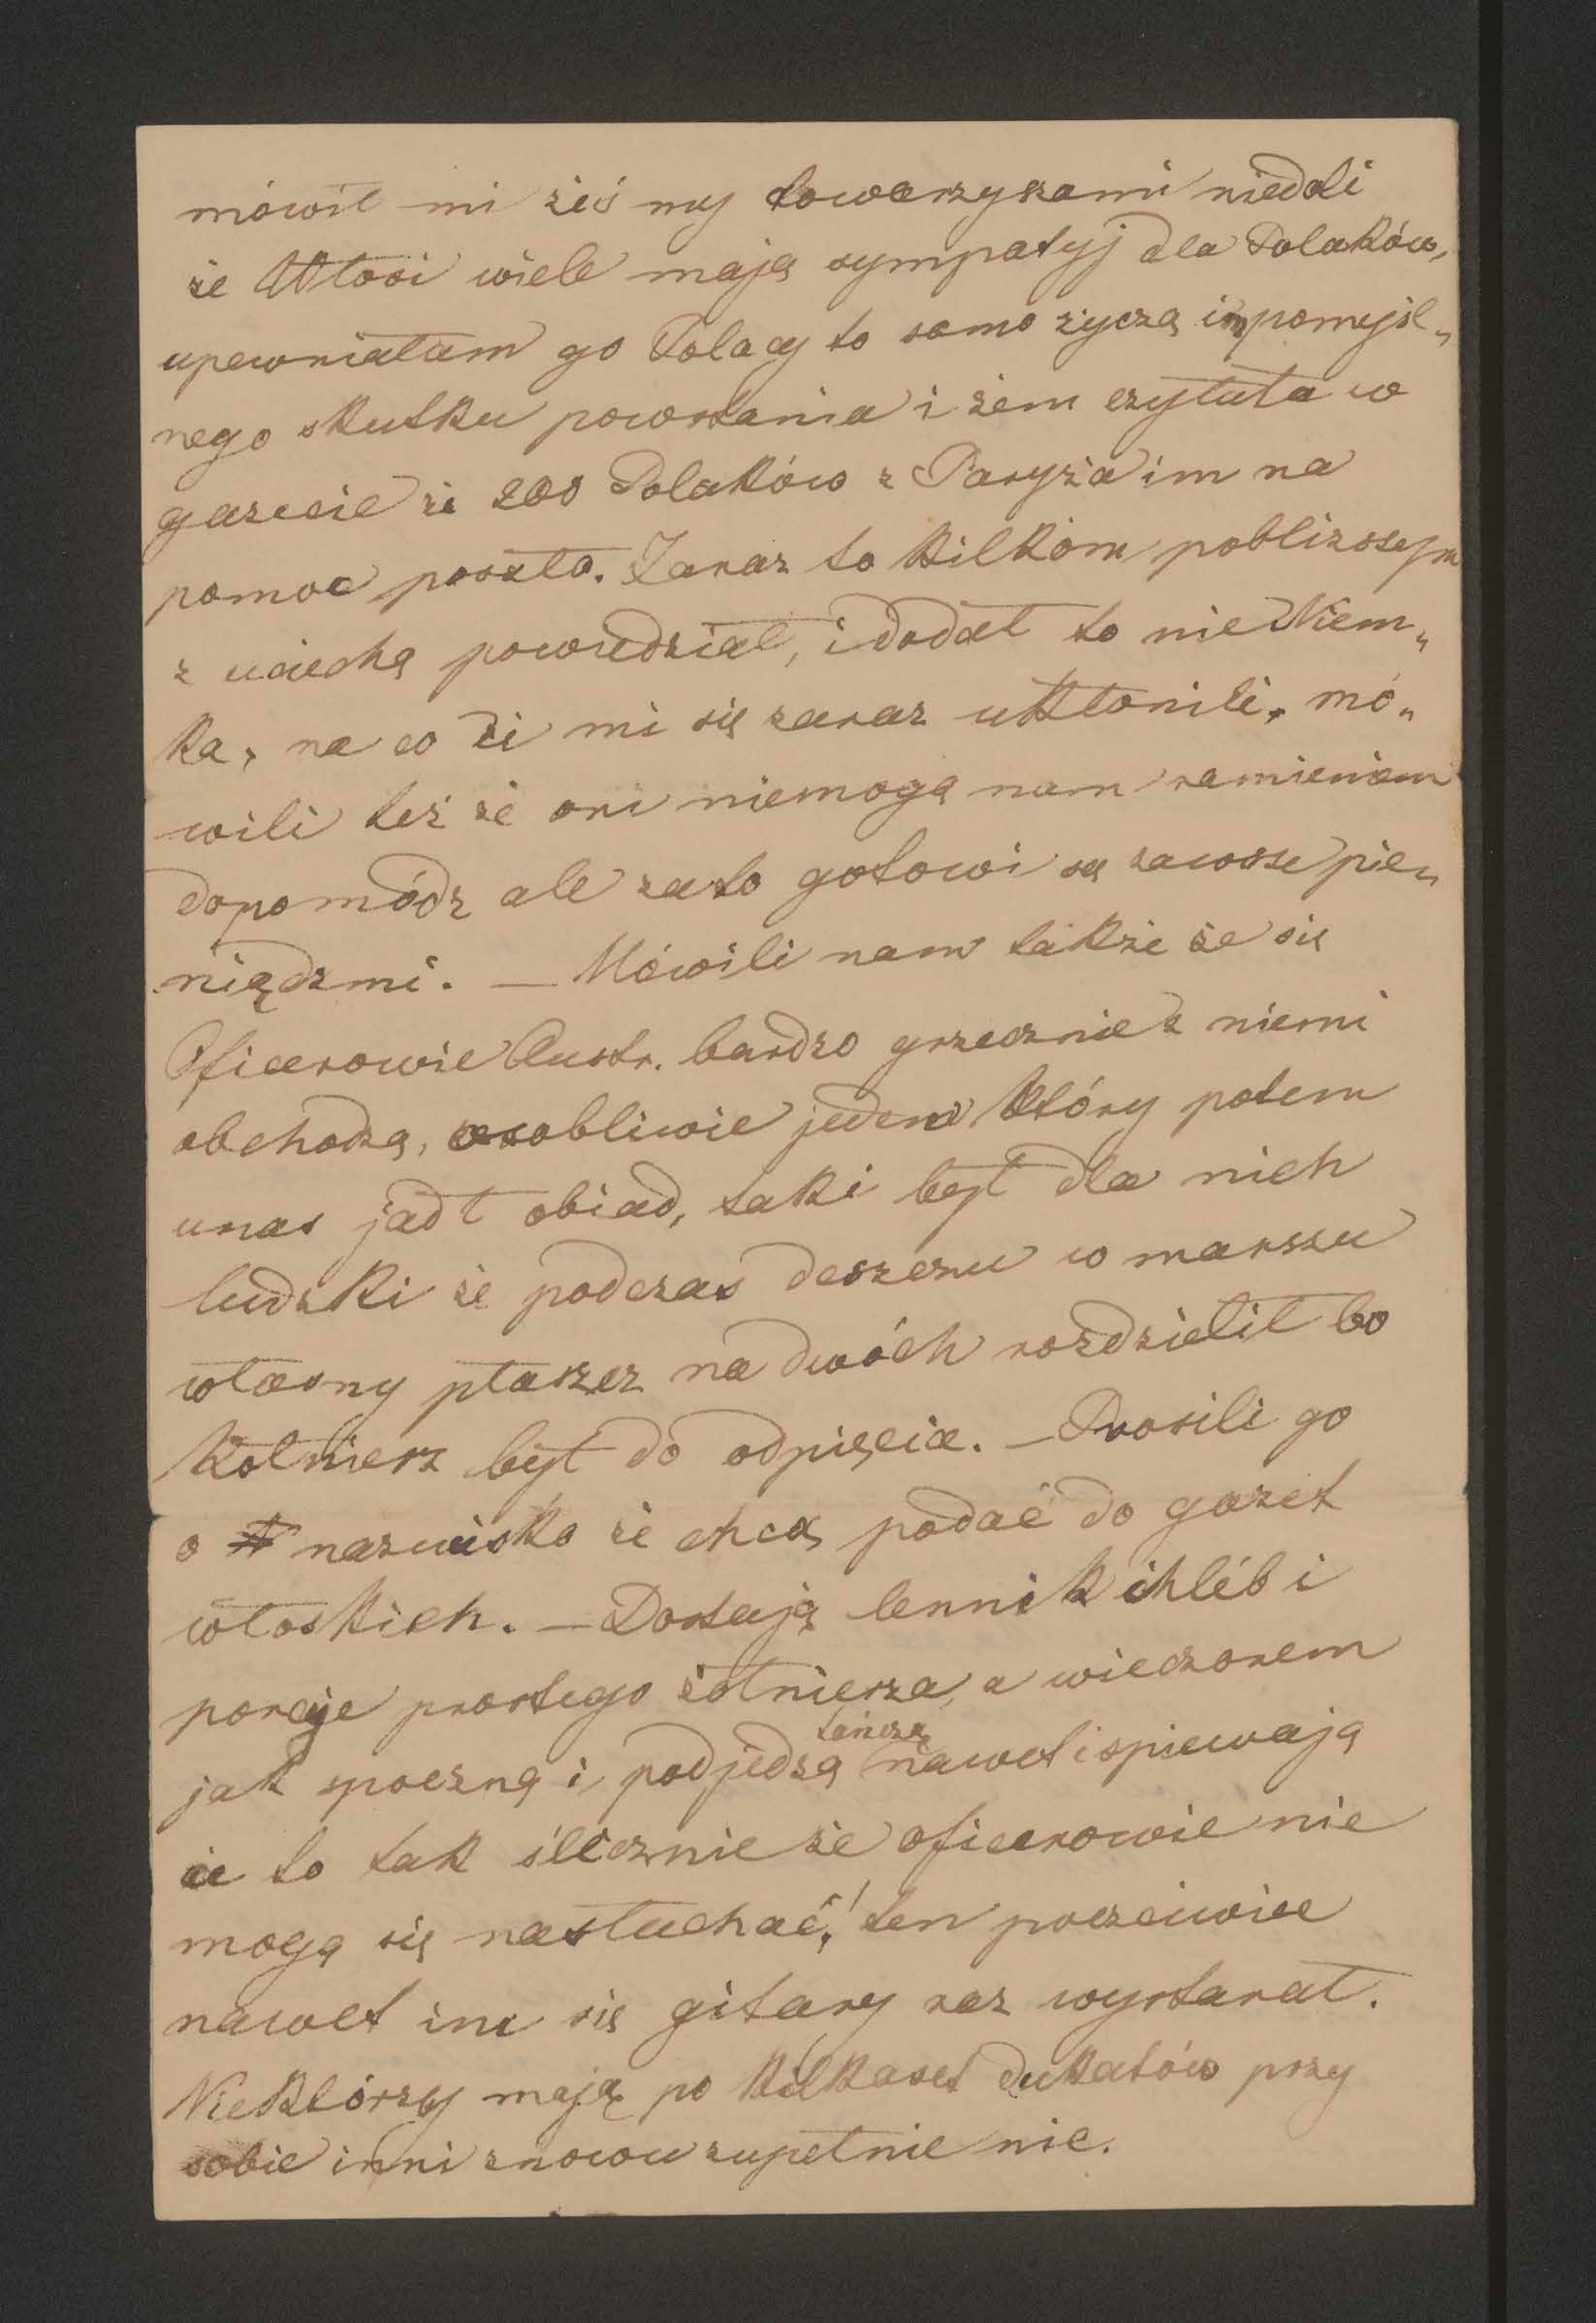 mówił mi żeś my towarzyszami niedoli
że Włosi wiele mają sympatyj dla Polaków,
upewniałam go Polacy to samo życzą im pomyśl„
nego skutku powstania i żem czytała w
gazecie że 200 Polaków z Paryża im na
pomoc poszło. Zaraz to kilkom pobliższym
z uciechą powiedział, i dodał to nie Niem„
ka, na co ci mi się zaraz ukłonili, mó„
wili też że oni niemogą nam ramieniem
dopomódz ale zato gotowi są zawsze pie„
niądzmi. — Mówili nam także że się
Oficerowie Austr. bardzo grzecznie z niemi
obchodzą, osobliwie jeden który potem
unas jadł obiad, taki był dla nich
ludzki że podczas deszczu w marszu
własny płaszcz na dwóch rozdzielił bo
kołnierz był do odpięcia. — Prosili go
o nazwisko że chcą podać do gazet
włoskich. — Dostają lennik chléb i
porcje prostego żołnierza, a wieczorem
jak spoczną i podjedzą tańczą nawet i spiewają
a to tak ślicznie że oficerowie nie
mogą się nasłuchać,! ten poczciwiec
nawet im się gitary raz wystarał.
Niektórzy mają po kilkaset dukatów przy
sobie inni znowu zupełnie nic.